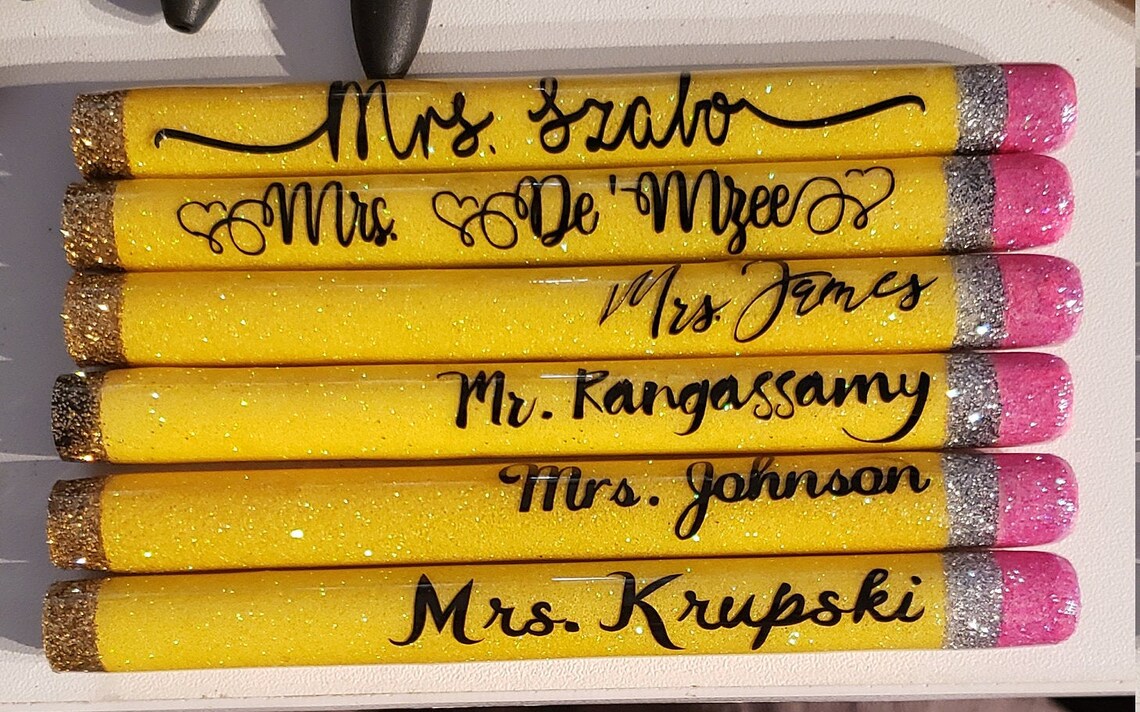 Mrs. Szabo
Mrs. De'Mzee
Mrs. James
Mr. Rangassamy
Mrs. Johnson
Mrs. Krupski